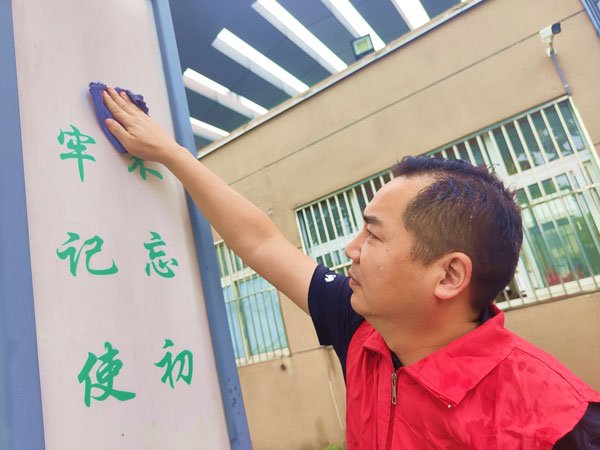 不忘初
牢记使